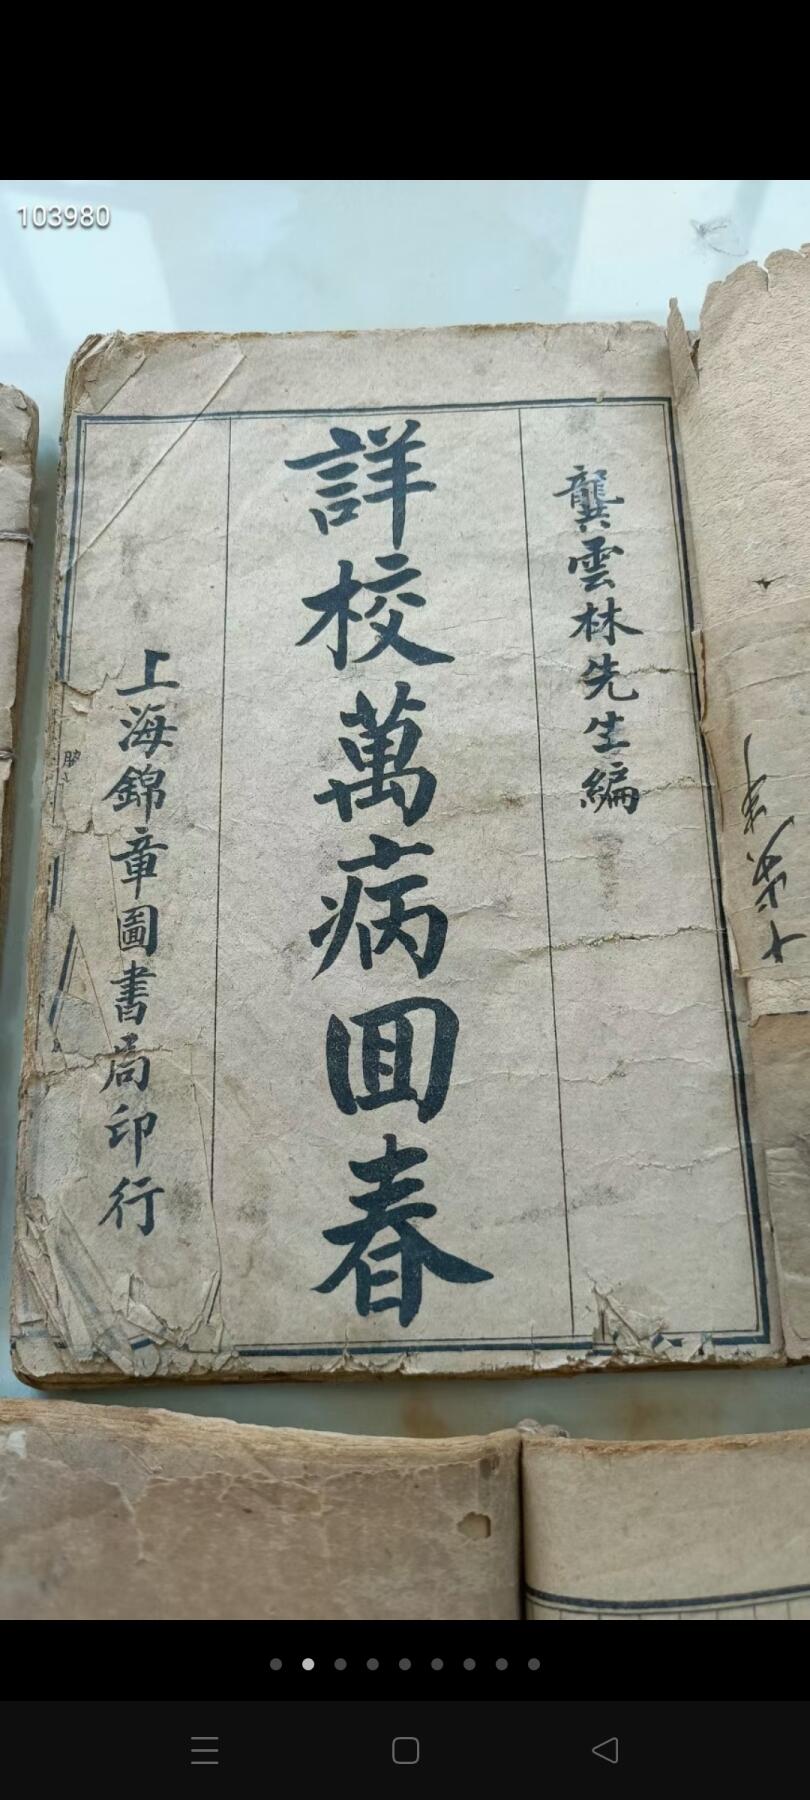 103980
龔雲林先生編
詳校萬病囬春
上海錦章圖書局印行